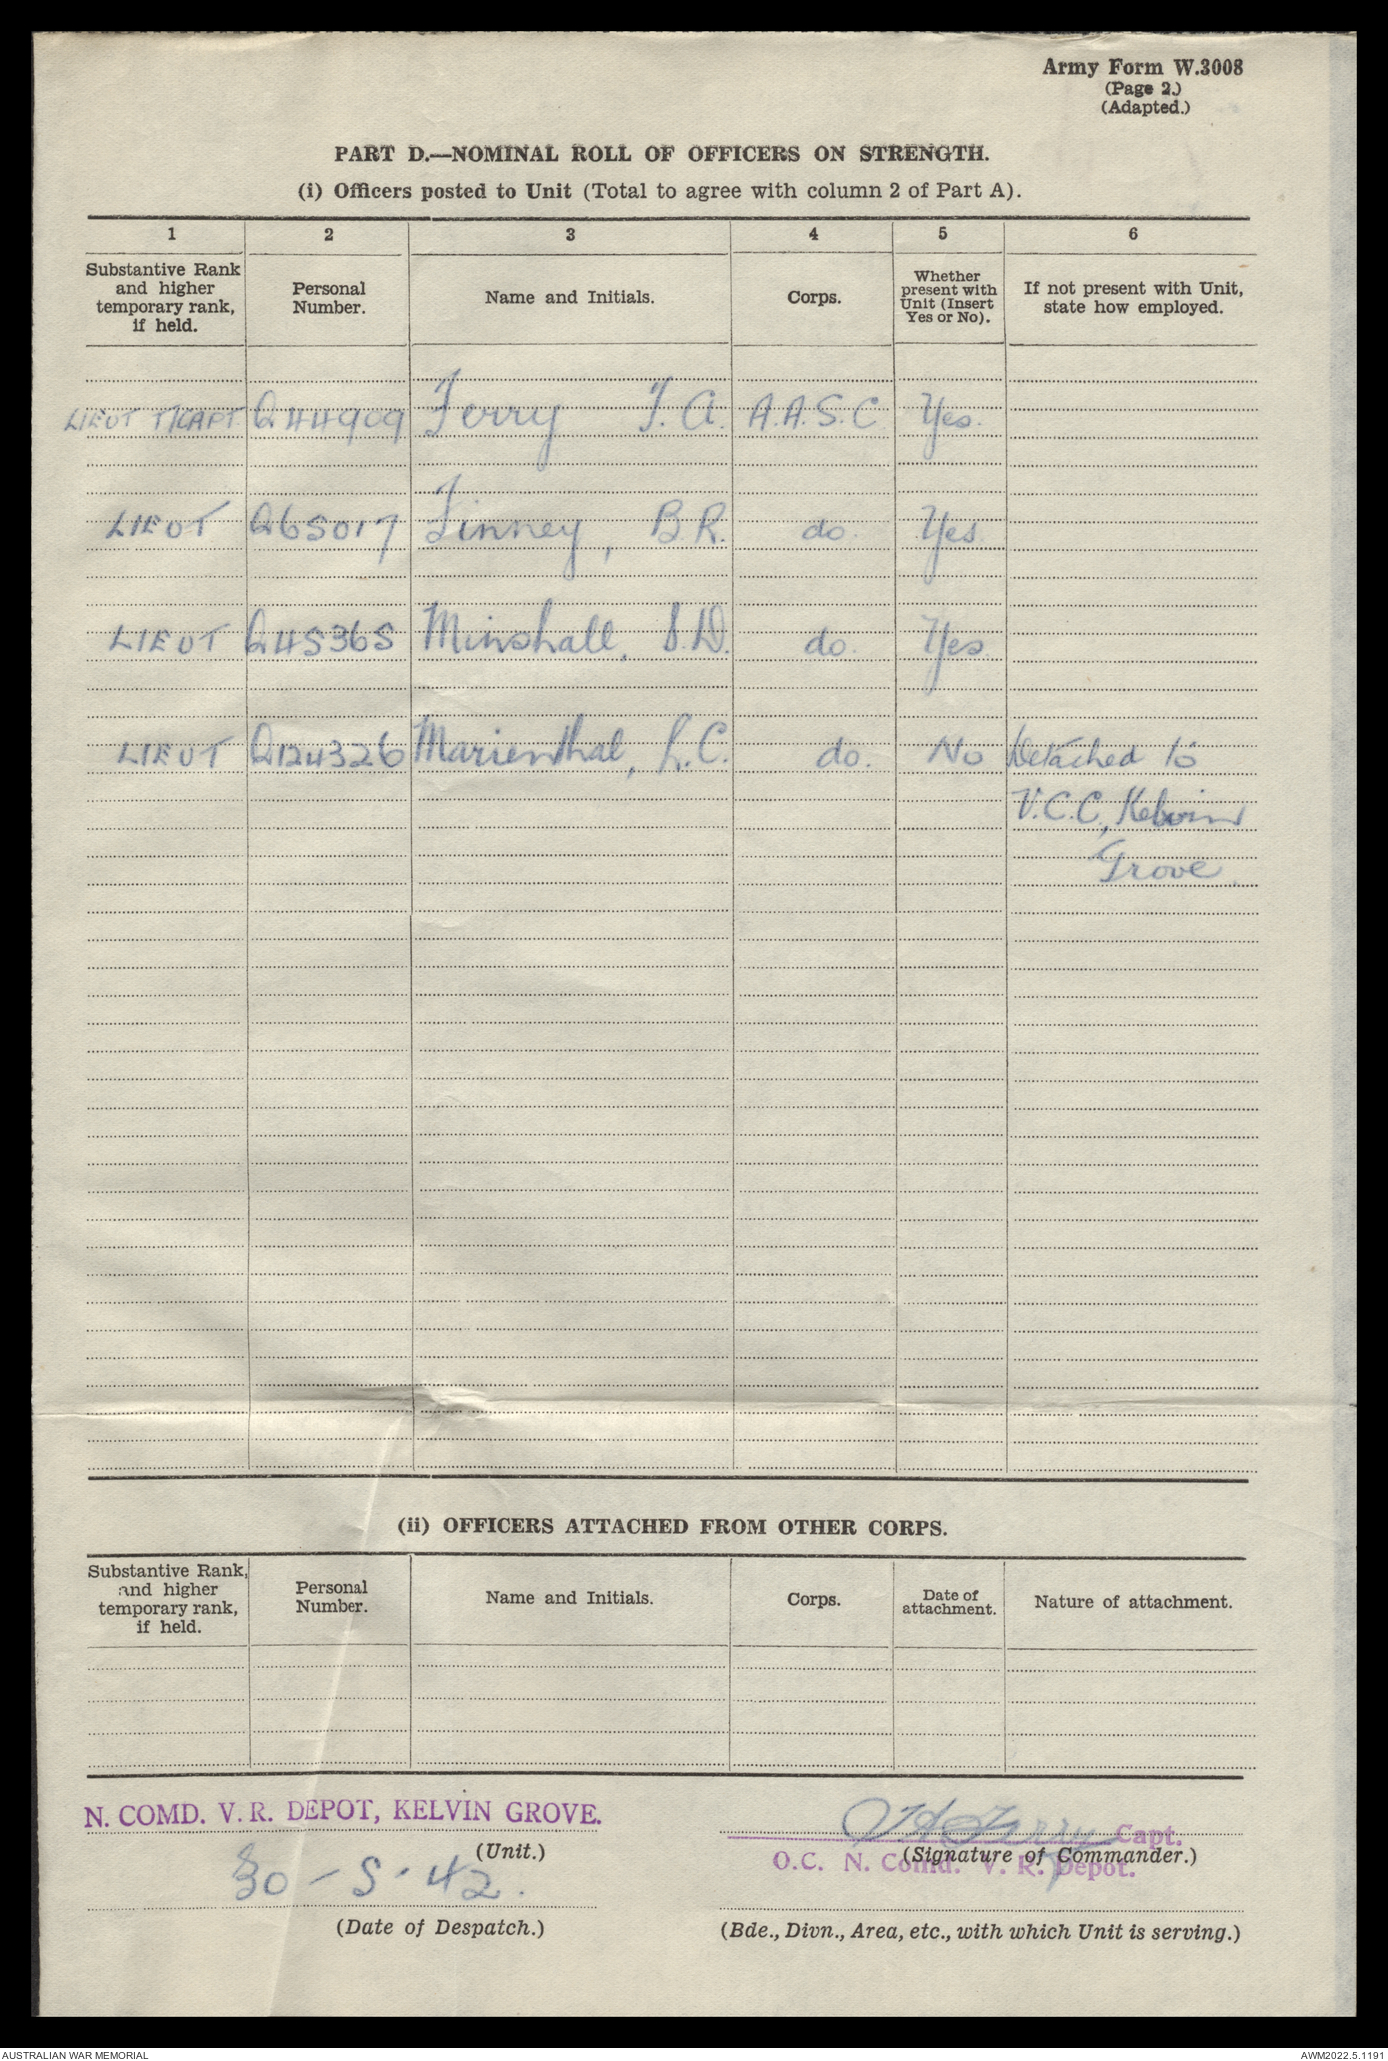 Army Form W.3008
(Page 2.)
(Adapted.)
PART D.—NOMINAL ROLL OF OFFICERS ON STRENGTH.
(i) Officers posted to Unit (Total to agree with column 2 of Part A).
1 2 3 4 5 6
Substantive Rank and higher temporary rank, if held. Personal Number. Name and Initials. Corps. Whether present with Unit (Insert Yes or No). If not present with Unit, state how employed.
LIEUT T/CAPT Q44909 Ferry F.A. A.A.S.C Yes.
LIEUT Q65017 Finney, B.R. do. Yes
LIEUT Q45365 Minshall, S.D. do. Yes
LIEUT Q124326 Marienthal, L.C. do. No Detached to
V.C.C, Kelvin
Grove.
(ii) OFFICERS ATTACHED FROM OTHER CORPS.
Substantive Rank, and higher temporary rank, if held. Personal Number. Name and Initials. Corps. Date of attachment. Nature of attachment.
N. COMD. V. R. DEPOT, KELVIN GROVE.
Capt.
(Unit.) (Signature of Commander.)
O.C. N. Comd. V. R. Depot.
30-5-42.
(Date of Despatch.) (Bde., Divn., Area, etc., with which Unit is serving.)
AUSTRALIAN WAR MEMORIAL AWM2022.5.1191